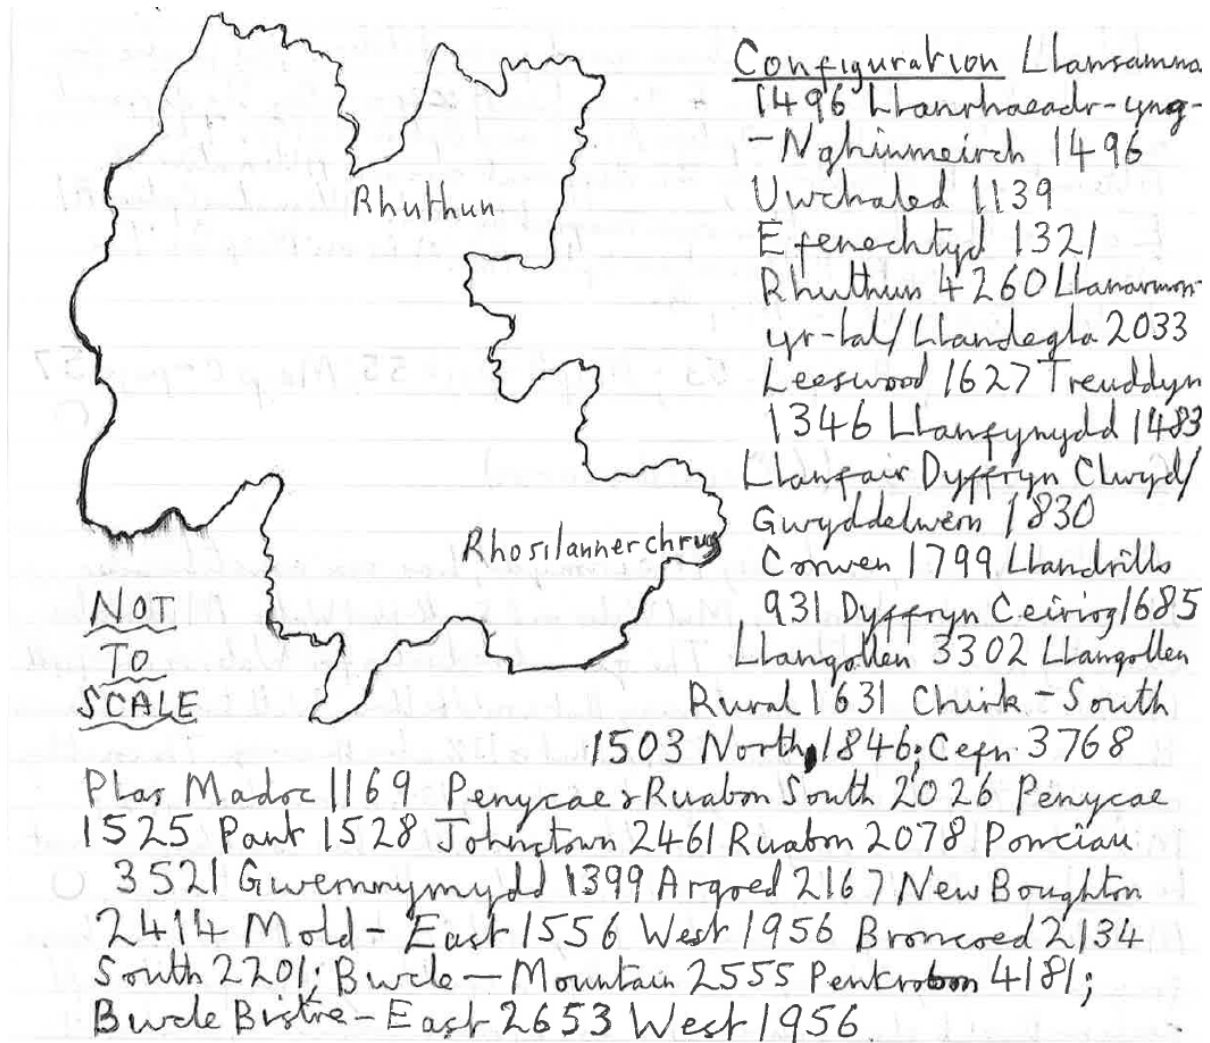 Configuration Llansanna
1496 Llanrhaeadr-yng-
-Nghinmeirch 1496
Uwchaled 1139
Efenechtyd 1321
Rhuthun 4260 Llanarmon-
yr-Ial/Llandegla 2033
Leeswood 1627 Treuddyn
1346 Llanfynydd 1483
Llanfair Dyffryn Clwyd/
Gwyddelwern 1830
Corwen 1799 Llandrillo
931 Dyffryn Ceiriog 1685
Llangollen 3302 Llangollen
Rural 1631 Chirk - South
1503 North, 1846; Cefn 3768
Plas Madoc 1169 Penycae & Ruabon South 2026 Penycae
1525 Pant 1528 Johnstown 2461 Ruabon 2078 Ponciau
3521 Gwernymynydd 1399 Argoed 2167 New Boughton
2414 Mold - East 1556 West 1956 Broncoed 2134
South 2201; Bwcle - Mountain 2555 Pentrobon 4181;
Bwcle Bistre - East 2653 West 1956.
Rhuthun
Rhosllannerchrug
NOT
TO
SCALE